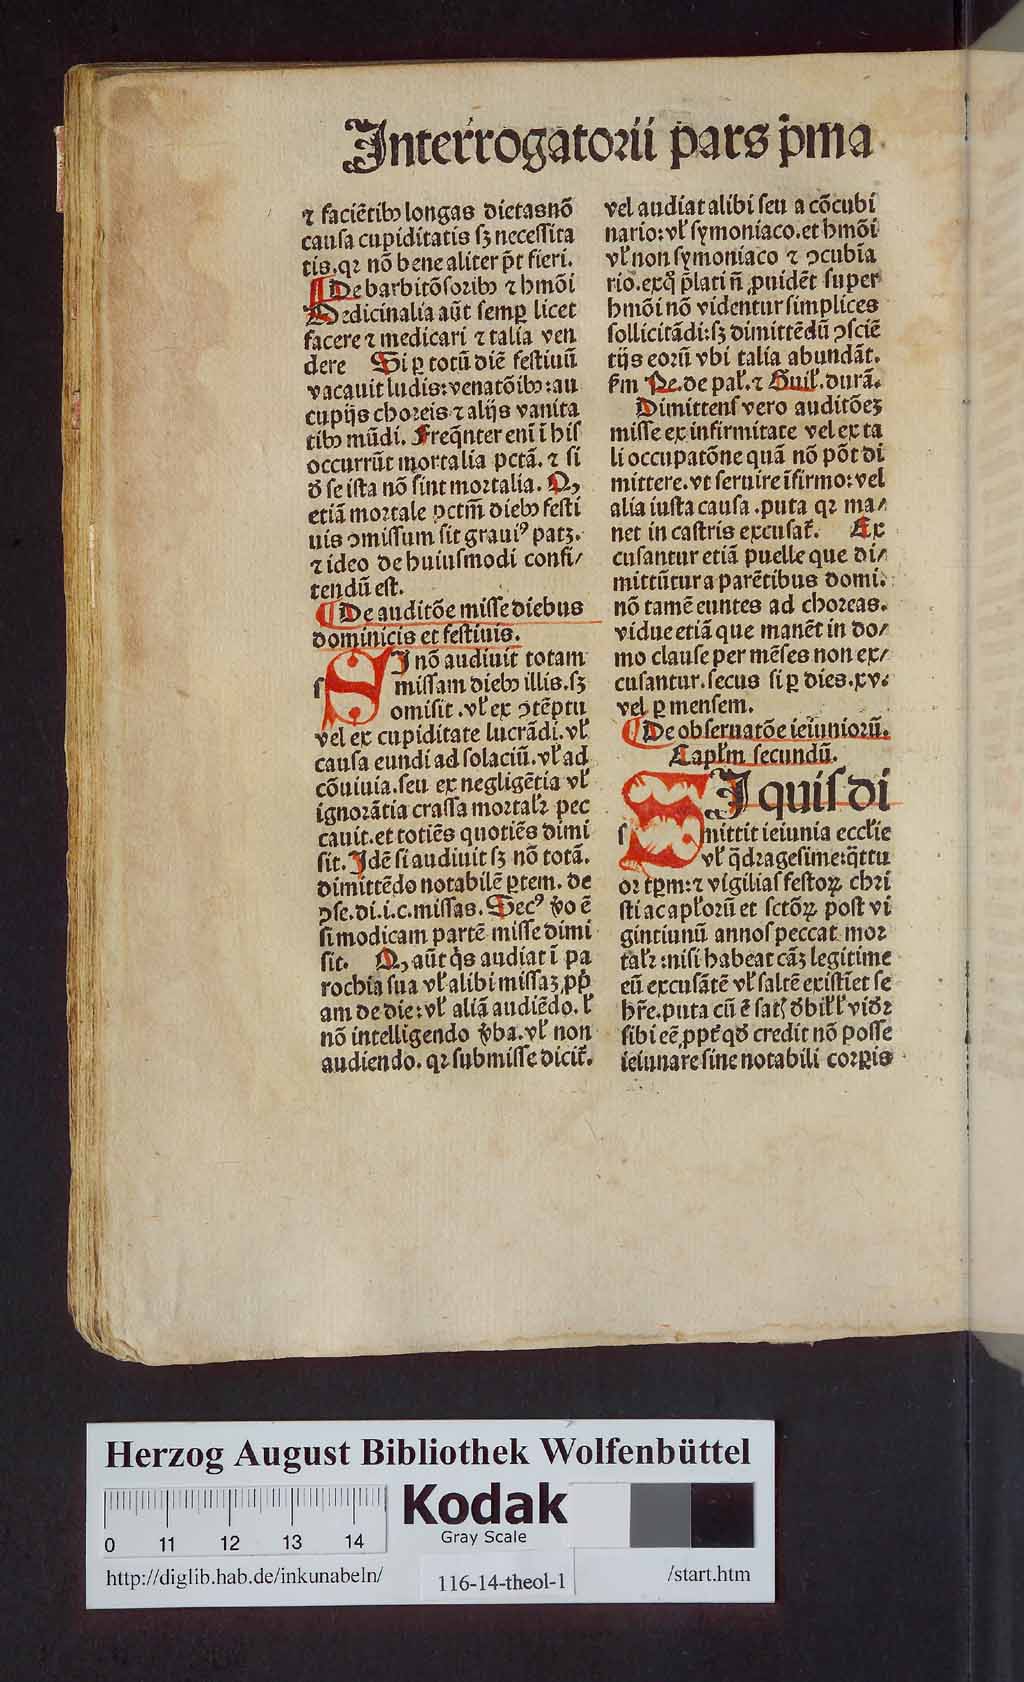 Interrogatorii pars p̄ma
⁊ faciētibꝰ longas dietas nō
causa cupiditatis sꝫ necessita
tis. qꝛ nō bene aliter p̄t fieri.
De barbitōsoribꝰ ⁊ hmōi
Medicinalia aūt semꝑ licet
facere ⁊ medicari ⁊ talia ven
dere Si ꝑ totū diē festiuū
vacauit ludis: venatōibꝰ: au
cupijs choreis ⁊ alijs vanita
tibꝰ mūdi. Freq̄nter eni ī his
occurrūt mortalia pctā. ⁊ si
d̄ se ista nō sint mortalia. Qꝫ
etiā mortale pctm̄ diebꝰ festi
uis ꝯmissum sit grauiꝰ patꝫ.
⁊ ideo de huiusmodi confi/
tendū est.
De auditōe misse diebus
dominicis et festiuis.
SI nō audiuit totam
s missam diebꝰ illis. sꝫ
omisit. vl̄ ex ꝯtēptu
vel ex cupiditate lucrādi. vl̄
causa eundi ad solaciū. vl̄ ad
cōuiuia. seu ex negligētia vl̄
ignorātia crassa mortalꝛ pec
cauit. et totiēs quotiēs dimi
sit. Idē si audiuit sꝫ nō totā.
dimittēdo notabilē ꝑtem. de
ꝯse. di. i. c. missas. Secꝰ v̄o ē
si modicam partē misse dimi
sit. Qꝫ aūt q̄s audiat ī pa
rochia sua vl̄ alibi missaꝫ ꝓp̄
am de die: vl̄ aliā audiēdo. l̄
nō intelligendo v̄ba. vl̄ non
audiendo. qꝛ submisse dicit̄.
vel audiat alibi seu a cōcubi
nario: vl̄ symoniaco. et hmōi
vl̄ non symoniaco ⁊ ꝯcubīa
rio. exq̄ p̄lati n̄ ꝓuidēt super
hmōi nō videntur simplices
sollicitādi: sꝫ dimittēdū ꝯsciē
tijs eorū vbi talia abundāt.
s̄m Pe. de pal̄. ⁊ Guil̄. durā.
Dimittens vero auditōeꝫ
misse ex infirmitate vel ex ta
li occupatōne quā nō pōt di
mittere. vt seruire īfirmo: vel
alia iusta causa. puta qꝛ ma/
net in castris excusat̄. Ex
cusantur etiā puelle que di/
mittūtur a parētibus domi.
nō tamē euntes ad choreas.
vidue etiā que manēt in do/
mo clause per mēses non ex/
cusantur. secus si ꝑ dies. xv.
vel ꝑ mensem.
De obseruatōe ieiuniorū.
Capl̄m secundū.
SI quis di
s mittit ieiunia eccl̄ie
vl̄ q̄dragesime: q̄ttu
or tꝑm: ⁊ vigilias festoꝝ chri
sti ac apl̄orū et sctōꝝ post vi
gintiunū annos peccat mor
talꝛ: nisi habeat cāꝫ legitime
eū excusātē vl̄ saltē existīet se
hr̄e. puta cū ē
sibi eē ꝓpt̄ qd̄ credit nō posse
ieiunare sine notabili corꝑis
Herzog August Bibliothek Wolfenbüttel
0 11 12 13 14
Kodak
Gray Scale
http://diglib.hab.de/inkunabeln/
116-14-theol-1
/start.htm